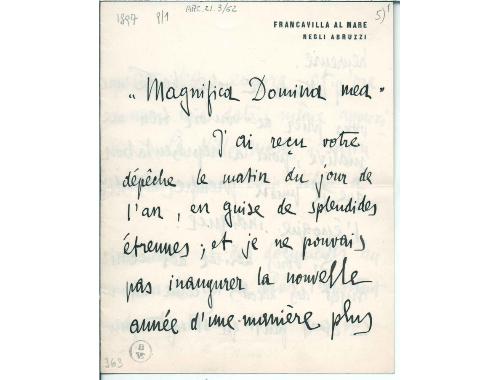 1897 9/1 ARC.21.3/52 5)1
FRANCAVILLA AL MARE
NEGLI ABRUZZI
"Magnifica Domina mea"
J'ai reçu votre
dépêche le matin du jour de
l'an, en guise de splendides
étrennes; et je ne pouvais
pas inaugurer la nouvelle
année d'une manière plus
363